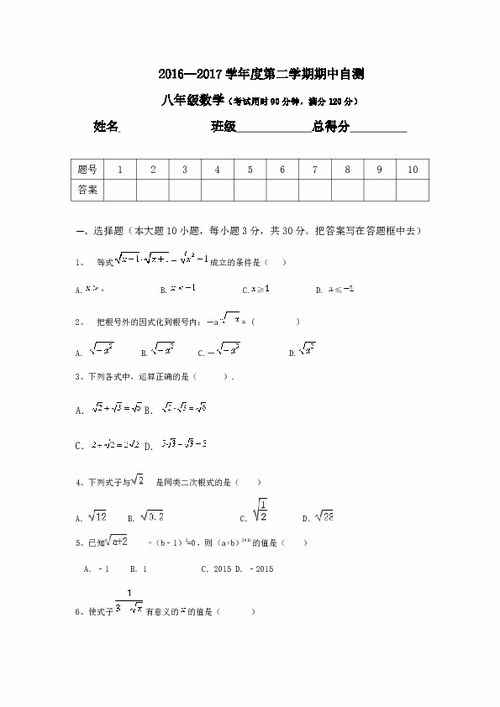 2016—2017学年度第二学期期中自测
八年级数学（考试用时90分钟，满分120分）
姓名 班级 总得分
题号 1 2 3 4 5 6 7 8 9 10
答案
一、选择题（本大题10小题，每小题3分，共30分。把答案写在答题框中去）
1、 等式 成立的条件是（ ）
A. B. x<-1 C.x≥1 D. x≤-1
2、 把根号外的因式化到根号内：—a =（ ）
A. B. C. D.
3、下列各式中，运算正确的是（ ）.
A、 √2+√3=√5 B、 √2·√3=√6
C、 2+√2=2√2 D、
4、下列式子与√2 是同类二次根式的是（ ）
A．√12 B．√0.2 C．√(1/2) D．√28
5、已知√(a+2) +（b﹣1）²=0，则（a+b） 的值是（ ）
A．﹣1 B．1 C．2015 D．﹣2015
6、使式子 有意义的x的值是（ ）